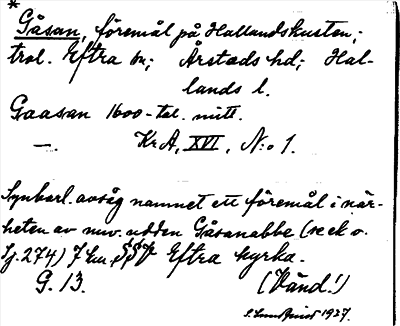 *
Gåsan, föremål på Hallandskusten;
trol. Eftra sn; Årstads hd; Hal-
lands l.
Gaasan 1600-tal. mitt.
—. Kr A, XVI, N:o 1.
Synbarl. avsåg namnet ett föremål i när-
heten av nuv. udden Gåsanabbe (se ek o.
Sj. 274) 7 km SSV Eftra kyrka.
G. 13. (Vänd!)
1927.